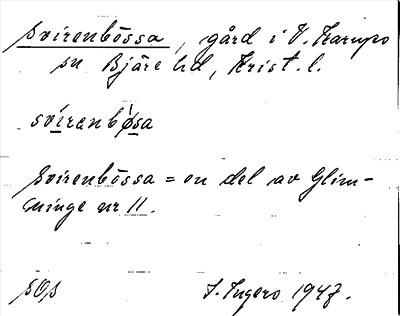 Svirenbössa, gård i V. Karups
sn Bjäre hd, Krist. l.
svirenbøsa
Svirenbössa = en del av Glim-
minge nr 11.
SOS
I. Ingers 1947.